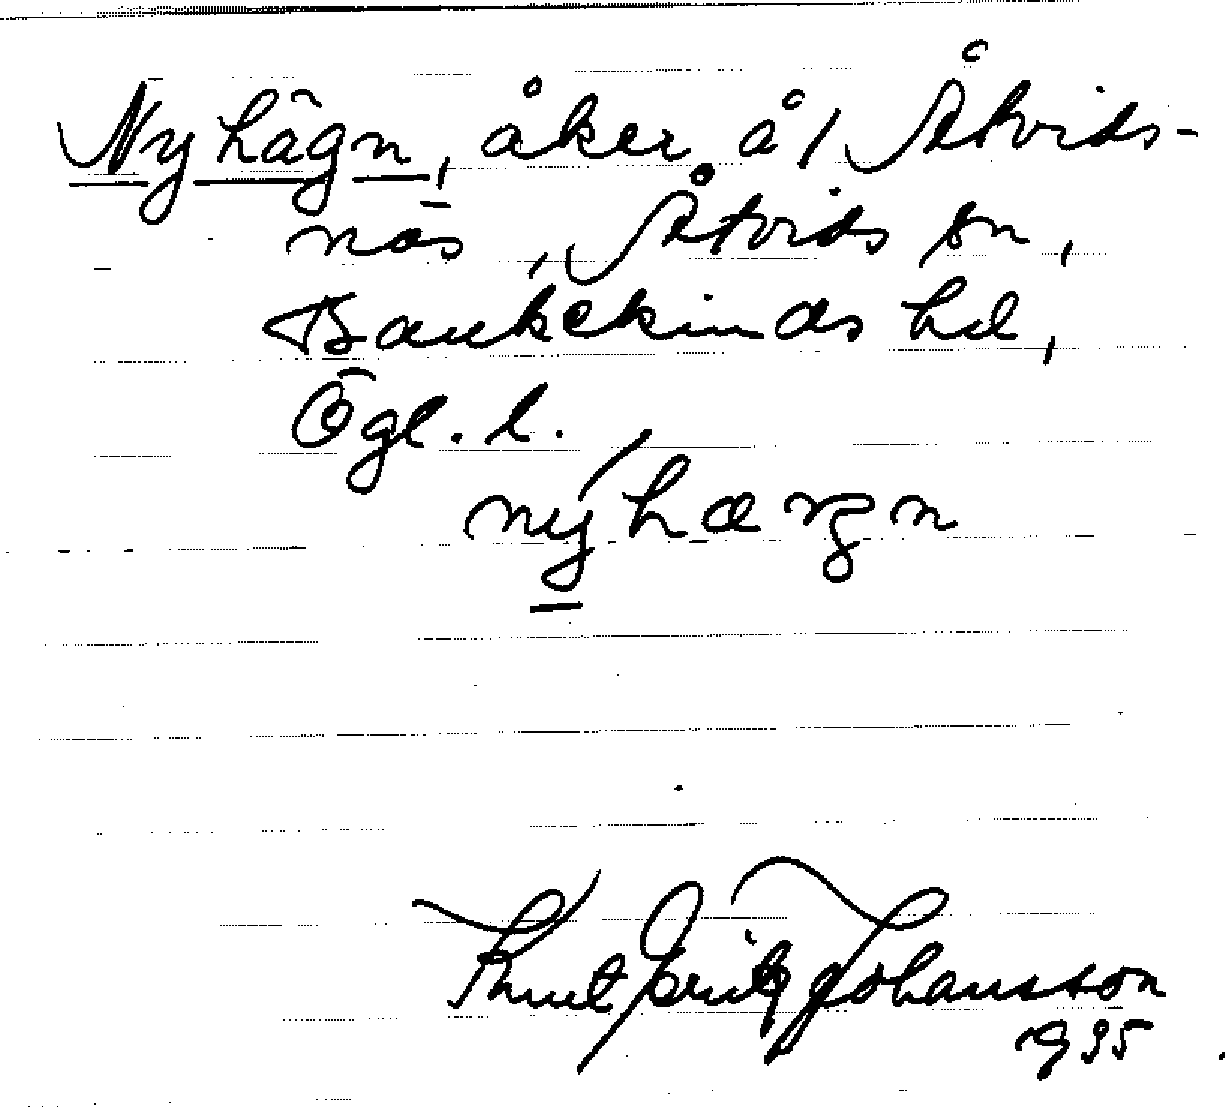 Nyhägn, åker å / Åtvids-
näs, Åtvids sn,
Bankekinds hd,
Ögl. l.
nyhæŋn
Knut Fritz Johansson
1935